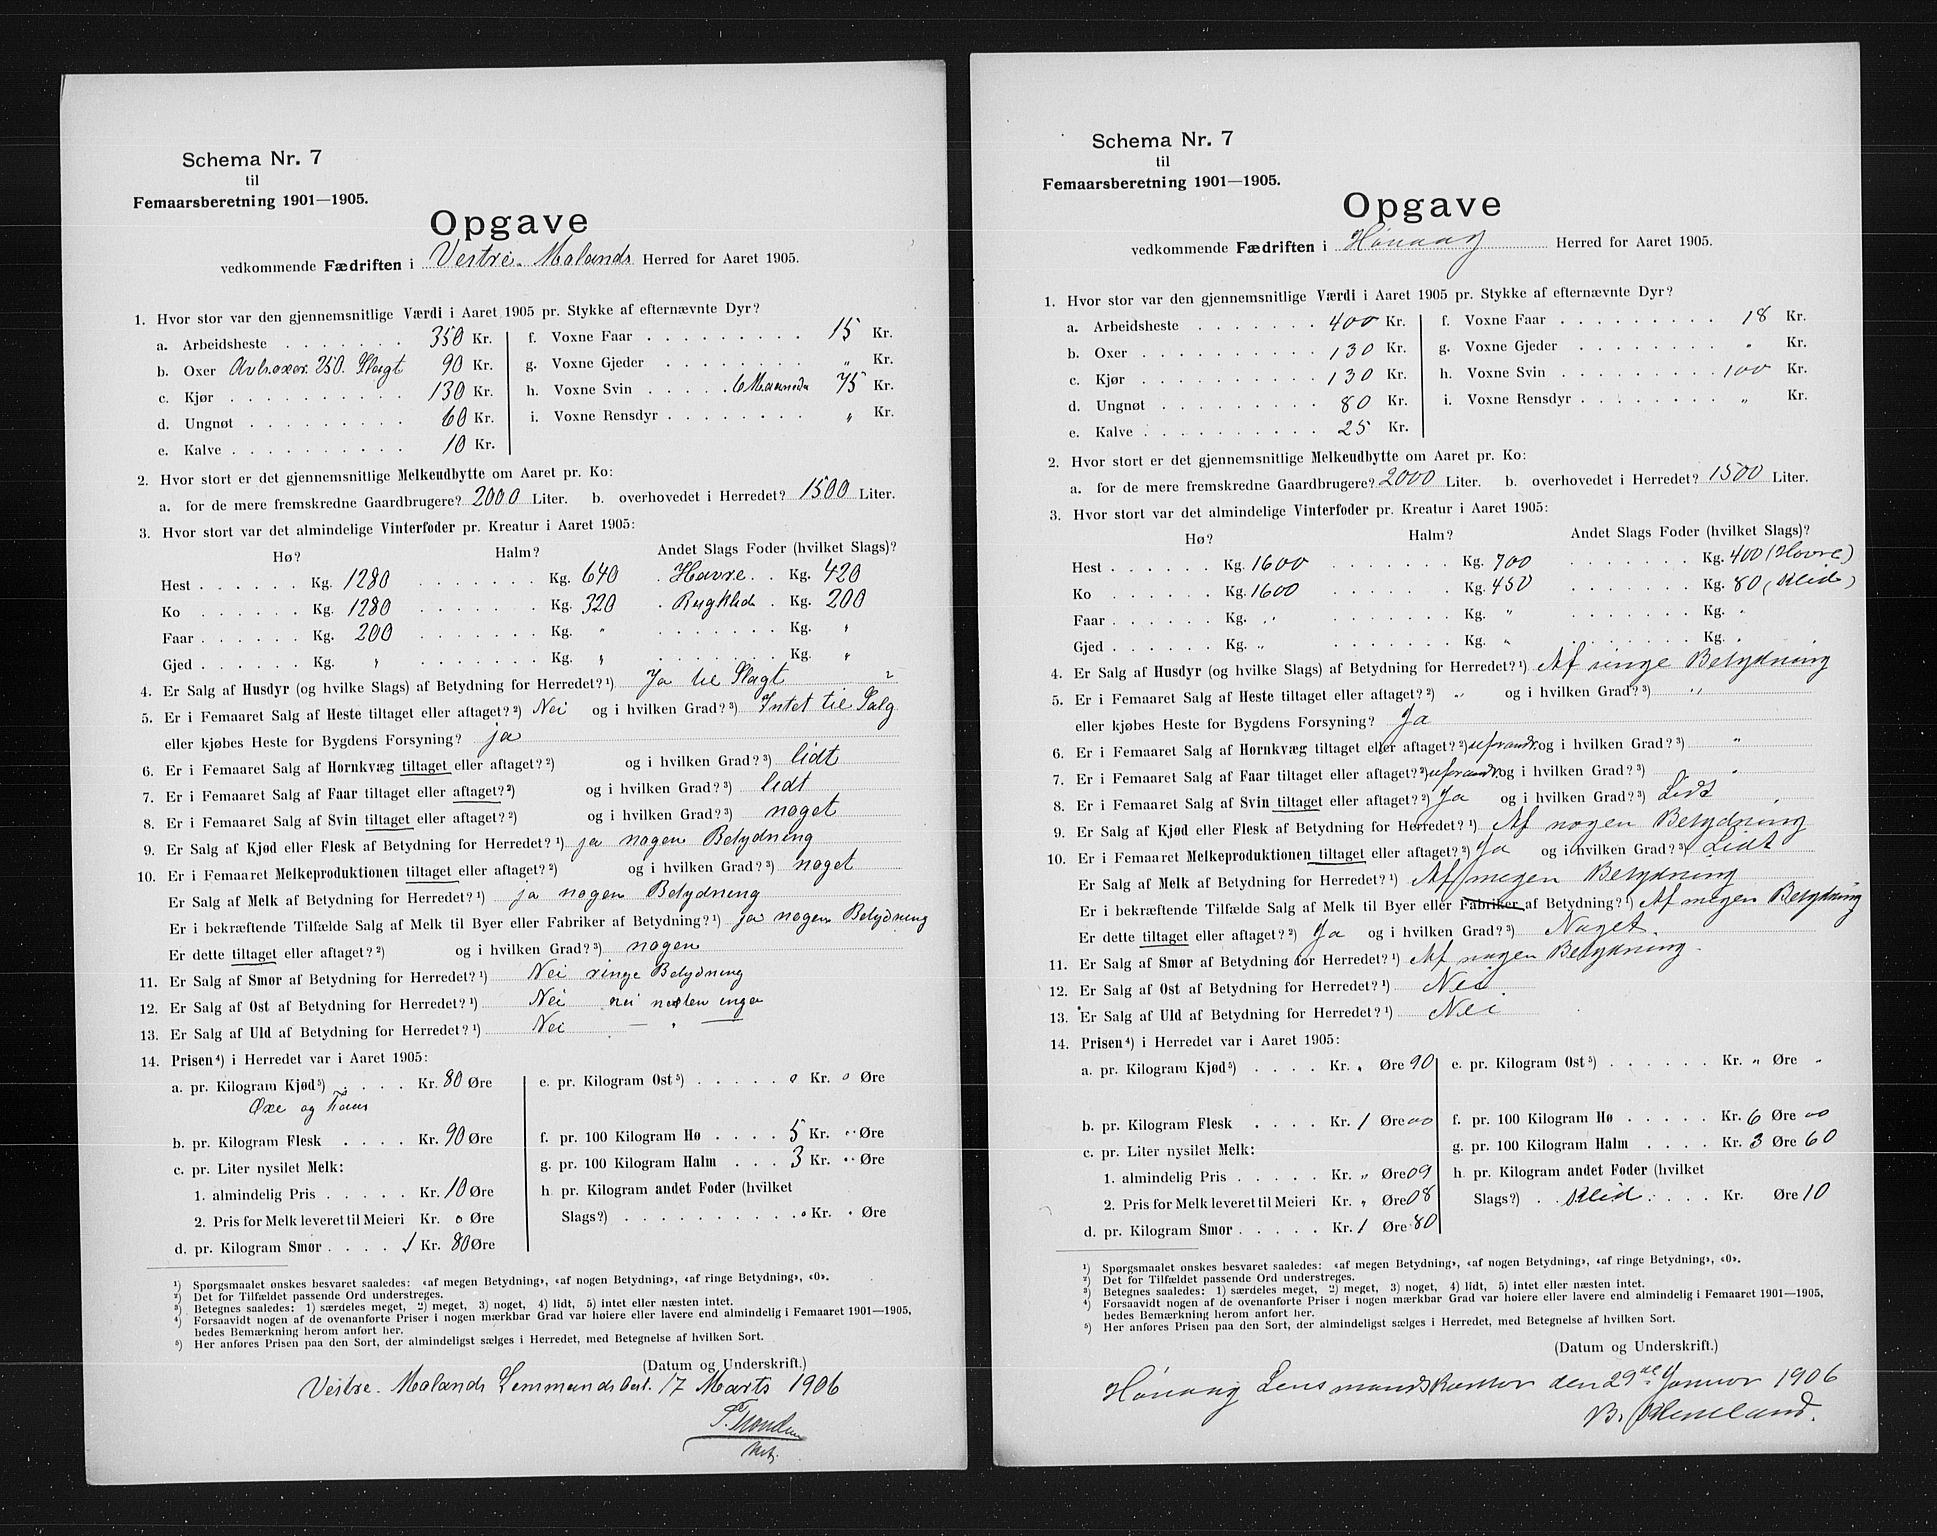 Schema Nr. 7
til
Femaarsberetning 1901—1905.
Opgave
vedkommende Fædriften i Vestre Molands Herred for Aaret 1905.
1. Hvor stor var den gjennemsnitlige Værdi i Aaret 1905 pr. Stykke af efternævnte Dyr?
a. Arbeidsheste . . . . . . . 350 Kr.
b. Oxer Avlsoxer. 250. Slagt 90 Kr.
c. Kjør . . . . . . . . . . 130 Kr.
d. Ungnøt . . . . . . . . . 60 Kr.
e. Kalve . . . . . . . . . . 10 Kr.
f. Voxne Faar . . . . . . . . . 15 Kr.
g. Voxne Gjeder . . . . . . . . „ Kr.
h. Voxne Svin . . . . . 6 Maaneder 75 Kr.
i. Voxne Rensdyr . . . . . . . . „ Kr.
2. Hvor stort er det gjennemsnitlige Melkeudbytte om Aaret pr. Ko:
a. for de mere fremskredne Gaardbrugere? 2000 Liter. b. overhovedet i Herredet? 1500 Liter.
3. Hvor stort var det almindelige Vinterfoder pr. Kreatur i Aaret 1905:
Hø? Halm? Andet Slags Foder (hvilket Slags)?
Hest . . . . . . Kg. 1280 . . . . . . . Kg. 640 . Havre . Kg. 420
Ko . . . . . . Kg. 1280 . . . . . . . Kg. 320 . Rugklid . Kg. 200
Faar . . . . . . Kg. 200 . . . . . . . Kg. „ . . . . . . . Kg. „
Gjed . . . . . . Kg. „ . . . . . . . Kg. „ . . . . . . . Kg. „
4. Er Salg af Husdyr (og hvilke Slags) af Betydning for Herredet?¹) Ja til Slagt
5. Er i Femaaret Salg af Heste tiltaget eller aftaget?²) Nei og i hvilken Grad?³) Intet til Salg
eller kjøbes Heste for Bygdens Forsyning? ja
6. Er i Femaaret Salg af Hornkvæg tiltaget eller aftaget?²) og i hvilken Grad?³) lidt
7. Er i Femaaret Salg af Faar tiltaget eller aftaget?²) og i hvilken Grad?³) lidt
8. Er i Femaaret Salg af Svin tiltaget eller aftaget?²) og i hvilken Grad?³) noget
9. Er Salg af Kjød eller Flesk af Betydning for Herredet?¹) ja nogen Betydning
10. Er i Femaaret Melkeproduktionen tiltaget eller aftaget?²) og i hvilken Grad?³) noget
Er Salg af Melk af Betydning for Herredet?¹) ja nogen Betydning
Er i bekræftende Tilfælde Salg af Melk til Byer eller Fabriker af Betydning?¹) ja nogen Betydning
Er dette tiltaget eller aftaget?²) og i hvilken Grad?³) nogen
11. Er Salg af Smør af Betydning for Herredet?¹) Nei ringe Betydning
12. Er Salg af Ost af Betydning for Herredet?¹) Nei nei næsten ingen
13. Er Salg af Uld af Betydning for Herredet?¹) Nei — „ —
14. Prisen⁴) i Herredet var i Aaret 1905:
a. pr. Kilogram Kjød⁵) . . . . Kr. 80 Øre
Oxe og Faar
b. pr. Kilogram Flesk . . . . Kr. 90 Øre
c. pr. Liter nysilet Melk:
1. almindelig Pris . . . . . Kr. 10 Øre
2. Pris for Melk leveret til Meieri Kr. 0 Øre
d. pr. Kilogram Smør . . . . 1 Kr. 80 Øre
e. pr. Kilogram Ost⁵) . . . . . 0 Kr. 0 Øre
f. pr. 100 Kilogram Hø . . . . 5 Kr. „ Øre
g. pr. 100 Kilogram Halm . . . 3 Kr. „ Øre
h. pr. Kilogram andet Foder (hvilket
Slags?) . . . . . . . . . . Kr. . Øre
¹) Spørgsmaalet ønskes besvaret saaledes: «af megen Betydning», «af nogen Betydning», «af ringe Betydning», «0».
²) Det for Tilfældet passende Ord understreges.
³) Betegnes saaledes: 1) særdeles meget, 2) meget, 3) noget, 4) lidt, 5) intet eller næsten intet.
⁴) Forsaavidt nogen af de ovenanførte Priser i nogen mærkbar Grad var høiere eller lavere end almindelig i Femaaret 1901—1905,
bedes Bemærkning herom anført her.
⁵) Her anføres Prisen paa den Sort, der almindeligst sælges i Herredet, med Betegnelse af hvilken Sort.
(Datum og Underskrift.)
Vestre Molands Lensmandsbest. 17 Marts 1906
Schema Nr. 7
til
Femaarsberetning 1901—1905.
Opgave
vedkommende Fædriften i Høvaag Herred for Aaret 1905.
1. Hvor stor var den gjennemsnitlige Værdi i Aaret 1905 pr. Stykke af efternævnte Dyr?
a. Arbeidsheste . . . . . . . 400 Kr.
b. Oxer . . . . . . . . . . 130 Kr.
c. Kjør . . . . . . . . . . 130 Kr.
d. Ungnøt . . . . . . . . . 80 Kr.
e. Kalve . . . . . . . . . . 25 Kr.
f. Voxne Faar . . . . . . . . . 18 Kr.
g. Voxne Gjeder . . . . . . . . „ Kr.
h. Voxne Svin . . . . . . . . . 100 Kr.
i. Voxne Rensdyr . . . . . . . . „ Kr.
2. Hvor stort er det gjennemsnitlige Melkeudbytte om Aaret pr. Ko:
a. for de mere fremskredne Gaardbrugere? 2000 Liter. b. overhovedet i Herredet? 1500 Liter.
3. Hvor stort var det almindelige Vinterfoder pr. Kreatur i Aaret 1905:
Hø? Halm? Andet Slags Foder (hvilket Slags)?
Hest . . . . . . Kg. 1600 . . . . . . . Kg. 700 . . . . . . . Kg. 400 (Havre)
Ko . . . . . . Kg. 1600 . . . . . . . Kg. 450 . . . . . . . Kg. 80 (Klid)
Faar . . . . . . Kg. „ . . . . . . . Kg. „ . . . . . . . Kg. „
Gjed . . . . . . Kg. „ . . . . . . . Kg. „ . . . . . . . Kg. „
4. Er Salg af Husdyr (og hvilke Slags) af Betydning for Herredet?¹) Af ringe Betydning
5. Er i Femaaret Salg af Heste tiltaget eller aftaget?²) „ og i hvilken Grad?³) „
eller kjøbes Heste for Bygdens Forsyning? Ja
6. Er i Femaaret Salg af Hornkvæg tiltaget eller aftaget?²) uforandr. og i hvilken Grad?³) „
7. Er i Femaaret Salg af Faar tiltaget eller aftaget?²) uforandr. og i hvilken Grad?³) „
8. Er i Femaaret Salg af Svin tiltaget eller aftaget?²) Ja og i hvilken Grad?³) Lidt
9. Er Salg af Kjød eller Flesk af Betydning for Herredet?¹) Af nogen Betydning
10. Er i Femaaret Melkeproduktionen tiltaget eller aftaget?²) Ja og i hvilken Grad?³) Lidt
Er Salg af Melk af Betydning for Herredet?¹) Af megen Betydning
Er i bekræftende Tilfælde Salg af Melk til Byer eller Fabriker af Betydning?¹) Af megen Betydning
Er dette tiltaget eller aftaget?²) Ja og i hvilken Grad?³) Noget.
11. Er Salg af Smør af Betydning for Herredet?¹) Af nogen Betydning.
12. Er Salg af Ost af Betydning for Herredet?¹) Nei.
13. Er Salg af Uld af Betydning for Herredet?¹) Nei
14. Prisen⁴) i Herredet var i Aaret 1905:
a. pr. Kilogram Kjød⁵) . . . . Kr. „ Øre 90
b. pr. Kilogram Flesk . . . . Kr. 1 Øre 00
c. pr. Liter nysilet Melk:
1. almindelig Pris . . . . . Kr. „ Øre 09
2. Pris for Melk leveret til Meieri Kr. „ Øre 08
d. pr. Kilogram Smør . . . . . Kr. 1 Øre 80
e. pr. Kilogram Ost⁵) . . . . . . Kr. „ Øre „
f. pr. 100 Kilogram Hø . . . . . Kr. 6 Øre 00
g. pr. 100 Kilogram Halm . . . . Kr. 3 Øre 60
h. pr. Kilogram andet Foder (hvilket
Slags?) . . Klid . . . . Kr. Øre 10
¹) Spørgsmaalet ønskes besvaret saaledes: «af megen Betydning», «af nogen Betydning», «af ringe Betydning», «0».
²) Det for Tilfældet passende Ord understreges.
³) Betegnes saaledes: 1) særdeles meget, 2) meget, 3) noget, 4) lidt, 5) intet eller næsten intet.
⁴) Forsaavidt nogen af de ovenanførte Priser i nogen mærkbar Grad var høiere eller lavere end almindelig i Femaaret 1901—1905,
bedes Bemærkning herom anført her.
⁵) Her anføres Prisen paa den Sort, der almindeligst sælges i Herredet, med Betegnelse af hvilken Sort.
(Datum og Underskrift.)
Høvaag Lensmandskontor den 29de Januar 1906
B.